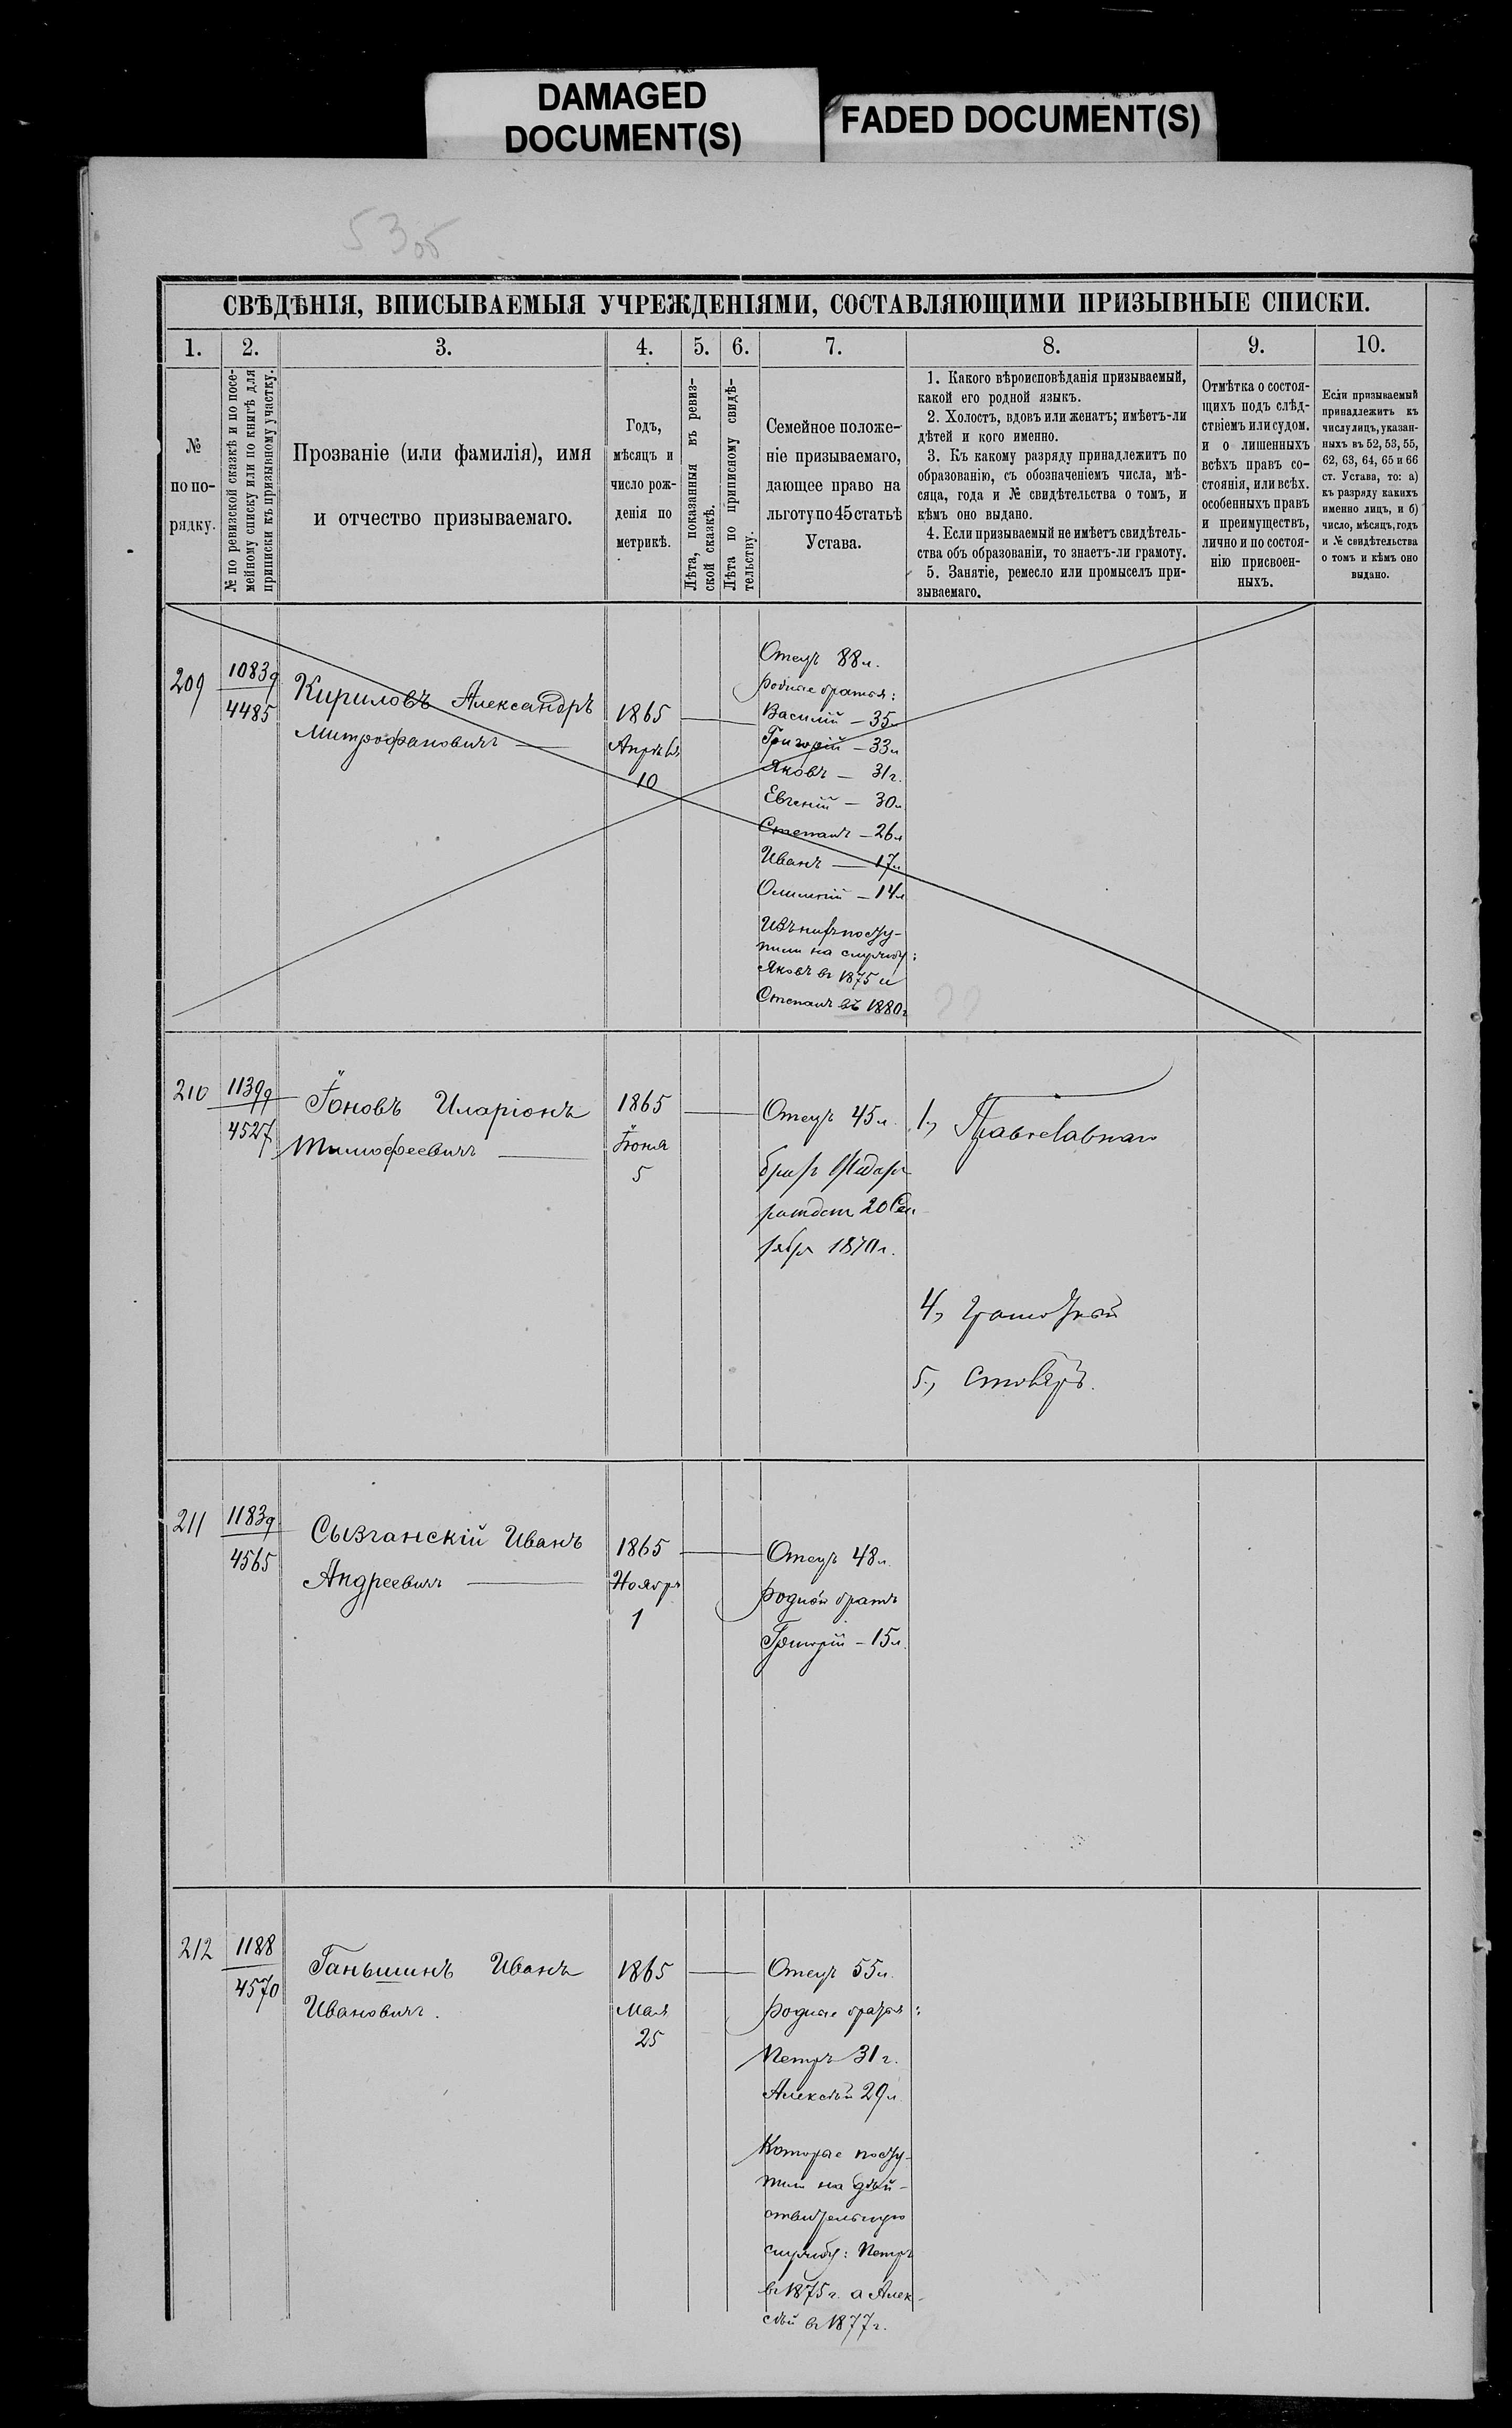 DAMAGED
DOCUMENT(S)
FADED DOCUMENT(S)
53об
СВѢДѢНІЯ, ВПИСЫВАЕМЫЯ УЧРЕЖДЕНІЯМИ, СОСТАВЛЯЮЩИМИ ПРИЗЫВНЫЕ СПИСКИ.
1. 2. 3. 4. 5. 6. 7. 8. 9. 10.
№
по по-
рядку.
№ по ревизской сказкѣ и по посе-
мейному списку или по книгѣ для
приписки къ призывному участку.
Прозваніе (или фамилія), имя
и отчество призываемаго.
Годъ,
мѣсяцъ и
число рож-
денія по
метрикѣ.
Лѣта, показанныя въ ревиз-
ской сказкѣ.
Лѣта по приписному свидѣ-
тельству.
Семейное положе-
ніе призываемаго,
дающее право на
льготу по 45 статьѣ
Устава.
1. Какого вѣроисповѣданія призываемый,
какой его родной языкъ.
2. Холостъ, вдовъ или женатъ; имѣетъ-ли
дѣтей и кого именно.
3. Къ какому разряду принадлежитъ по
образованію, съ обозначеніемъ числа, мѣ-
сяца, года и № свидѣтельства о томъ, и
кѣмъ оно выдано.
4. Если призываемый не имѣетъ свидѣтель-
ства объ образованіи, то знаетъ-ли грамоту.
5. Занятіе, ремесло или промыселъ при-
зываемаго.
Отмѣтка о состоя-
щихъ подъ слѣд-
ствіемъ или судом.
и о лишенныхъ
всѣхъ правъ со-
стоянія, или всѣх.
особенныхъ правъ
и преимуществъ,
лично и по состоя-
нію присвоен-
ныхъ.
Если призываемый
принадлежитъ къ
числу лицъ, указан-
ныхъ въ 52, 53, 55,
62, 63, 64, 65 и 66
ст. Устава, то: а)
къ разряду какихъ
именно лицъ, и б)
число, мѣсяцъ, годъ
и № свидѣтельства
о томъ и кѣмъ оно
выдано.
209
1083g
4485
Кириловъ Александръ
Митрофановичъ
1865
Апрѣля
10
Отецъ 88 л.
родные братья:
Василій — 35 л
Григорій — 33 л
Яковъ — 31 г.
Евгеній — 30 л
Степанъ — 26 л
Иванъ — 17 л
— 14 л
Изъ нихъ посту-
пили на службу:
Яковъ въ 1875 и
Степанъ въ 1880 г
210
1139g
4527
Іоновъ Иларіонъ
Тимофеевичъ
1865
Іюня
5
Отецъ 45 л.
братъ
20 Сен
тября 1870 г.
1, Православнаго
4, грамотный
5, столяръ.
211
1183g
4565
Сызганскій Иванъ
Андреевичъ
1865
Ноября
1
Отецъ 48 л.
родной братъ
Григорій — 15 л.
212
1188
4570
Ганьшинъ Иванъ
Ивановичъ.
1865
Мая
25
Отецъ 55 л.
родные братья:
Петръ 31 г.
Алексѣй 29 л
Которые посту-
пили на дѣй-
ствительную
службу: Петръ
въ 1875 г. а Алек-
сѣй въ 1877 г.